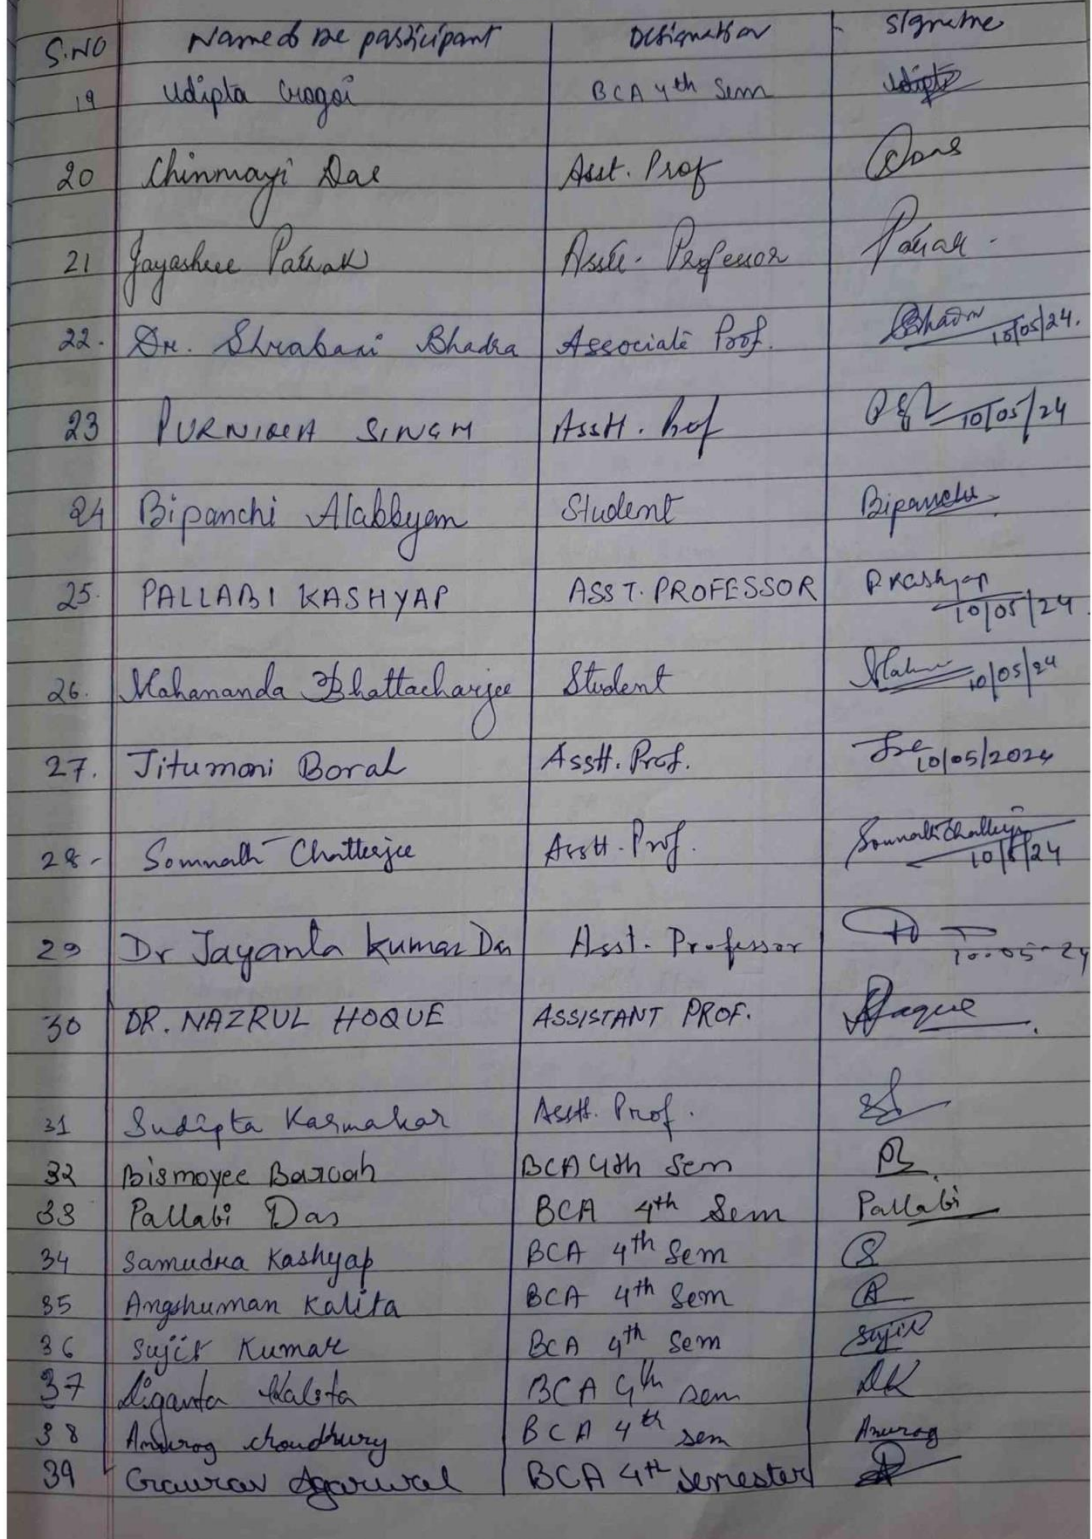 S.NO Name of the participant Designation Signature
19 Udipta Gogoi BCA 4th Sem Udipta
20 Chinmayi Das Asst. Prof Das
21 Jayashree Pathak Asstt. Professor Pathak
22. Dr. Shrabani Bhadra Associate Prof. Bhadra 10/05/24.
23 PURNIMA SINGH Asstt. Prof 10/05/24
24 Bipanchi Student Bipanchi
25. PALLABI KASHYAP ASST. PROFESSOR PKashyap 10/05/24
26. Mahananda Bhattacharjee Student 10/05/24
27. Jitumoni Borah Asstt. Prof. 10/05/2024
28- Somnath Chatterjee Asstt. Prof. Somnath Chatterjee 10/5/24
29 Dr Jayanta Kumar Das Asst. Professor 10-05-24
30 DR. NAZRUL HOQUE ASSISTANT PROF. Haque
31 Sudipta Karmakar Asstt. Prof.
32 Bismoyee Baruah BCA 4th Sem
33 Pallabi Das BCA 4th Sem Pallabi
34 Samudra Kashyap BCA 4th Sem S
35 Angshuman Kalita BCA 4th Sem A
36 Sujit Kumar BCA 4th Sem Sujit
37 Diganta Kalita BCA 4th sem DK
38 Anurag Choudhury BCA 4th sem Anurag
39 Gaurav Agarwal BCA 4th semester